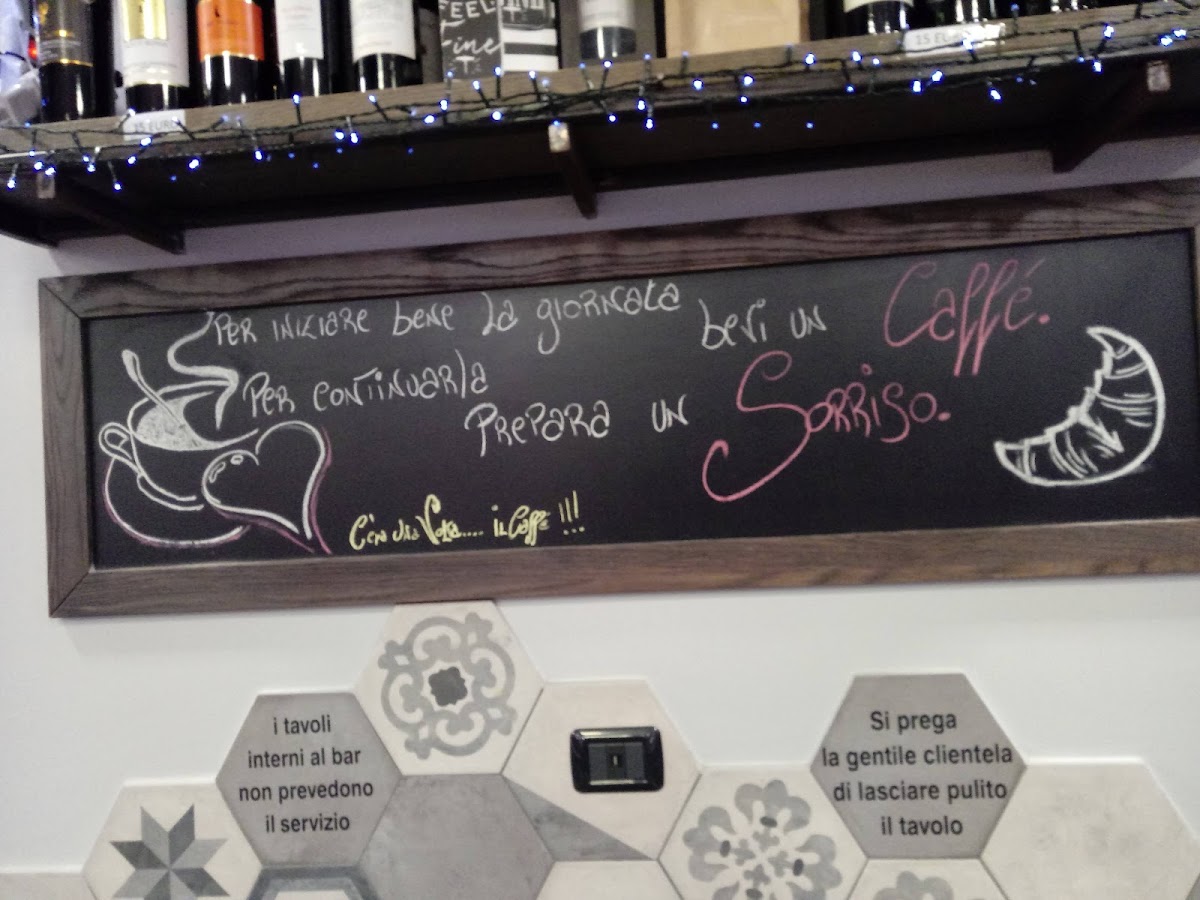 FEEL
ine
15 EURO
15 EU
PER INIZIARE bene La giornata bevi un Caffé.
PER CONTINUARLA
PREPARA UN SORRISO.
C'era una Volta..... il Caffè !!!
i tavoli
interni al bar
non prevedono
il servizio
Si prega
la gentile clientela
di lasciare pulito
il tavolo